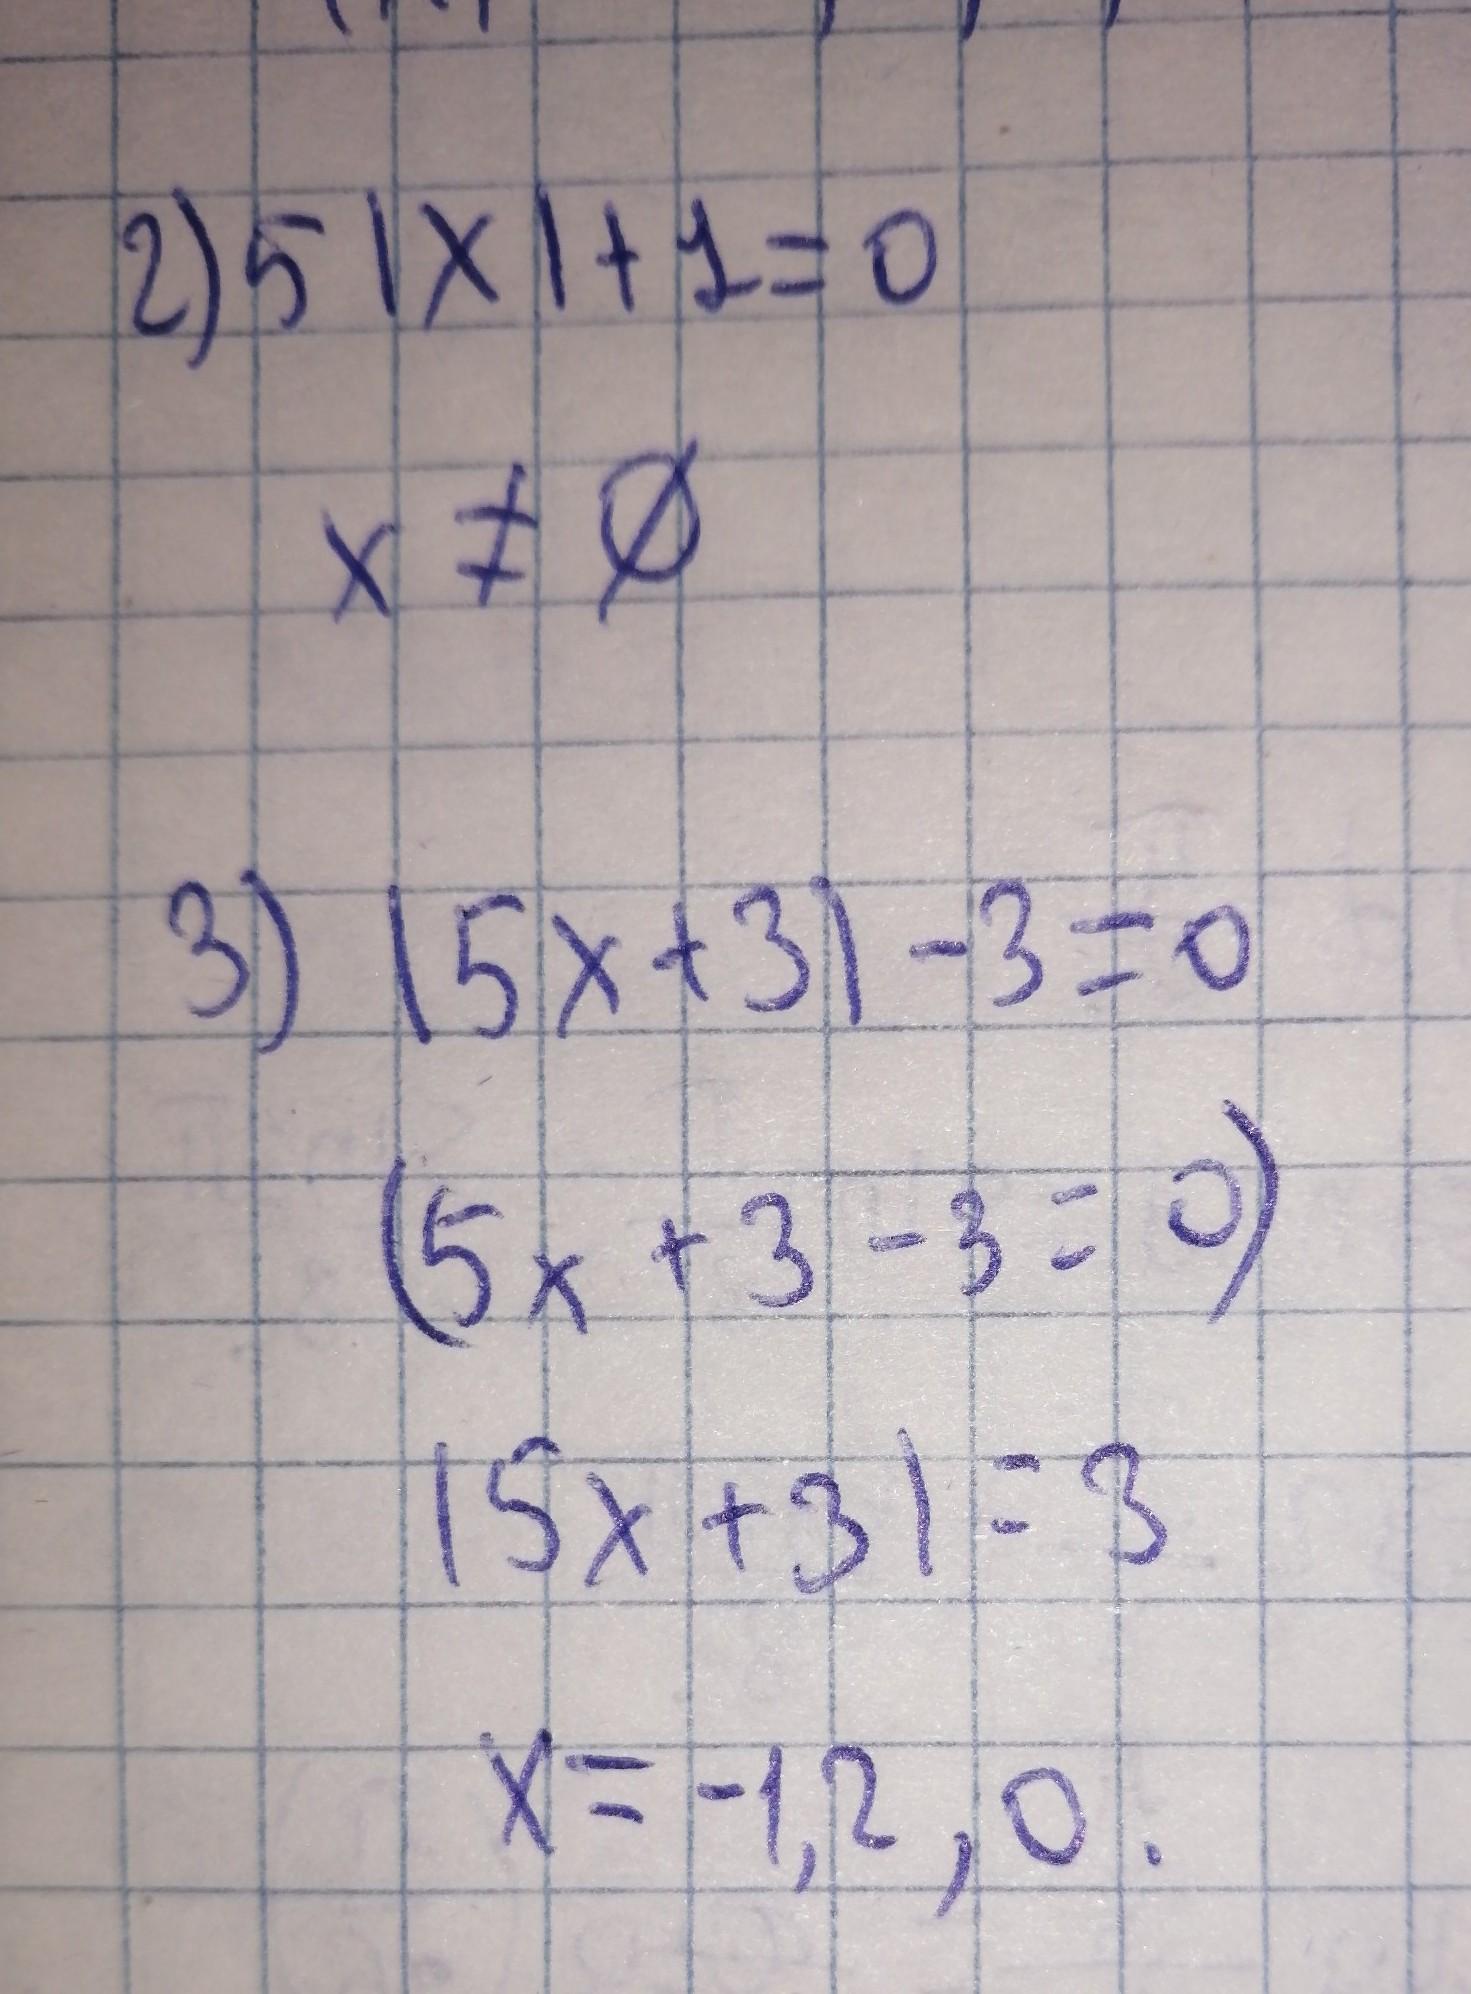 2) 5|x|+1=0
x ≠ Ø
3) |5x+3|-3=0
(5x+3-3=0)
|5x+3|=3
x=-1,2, 0.